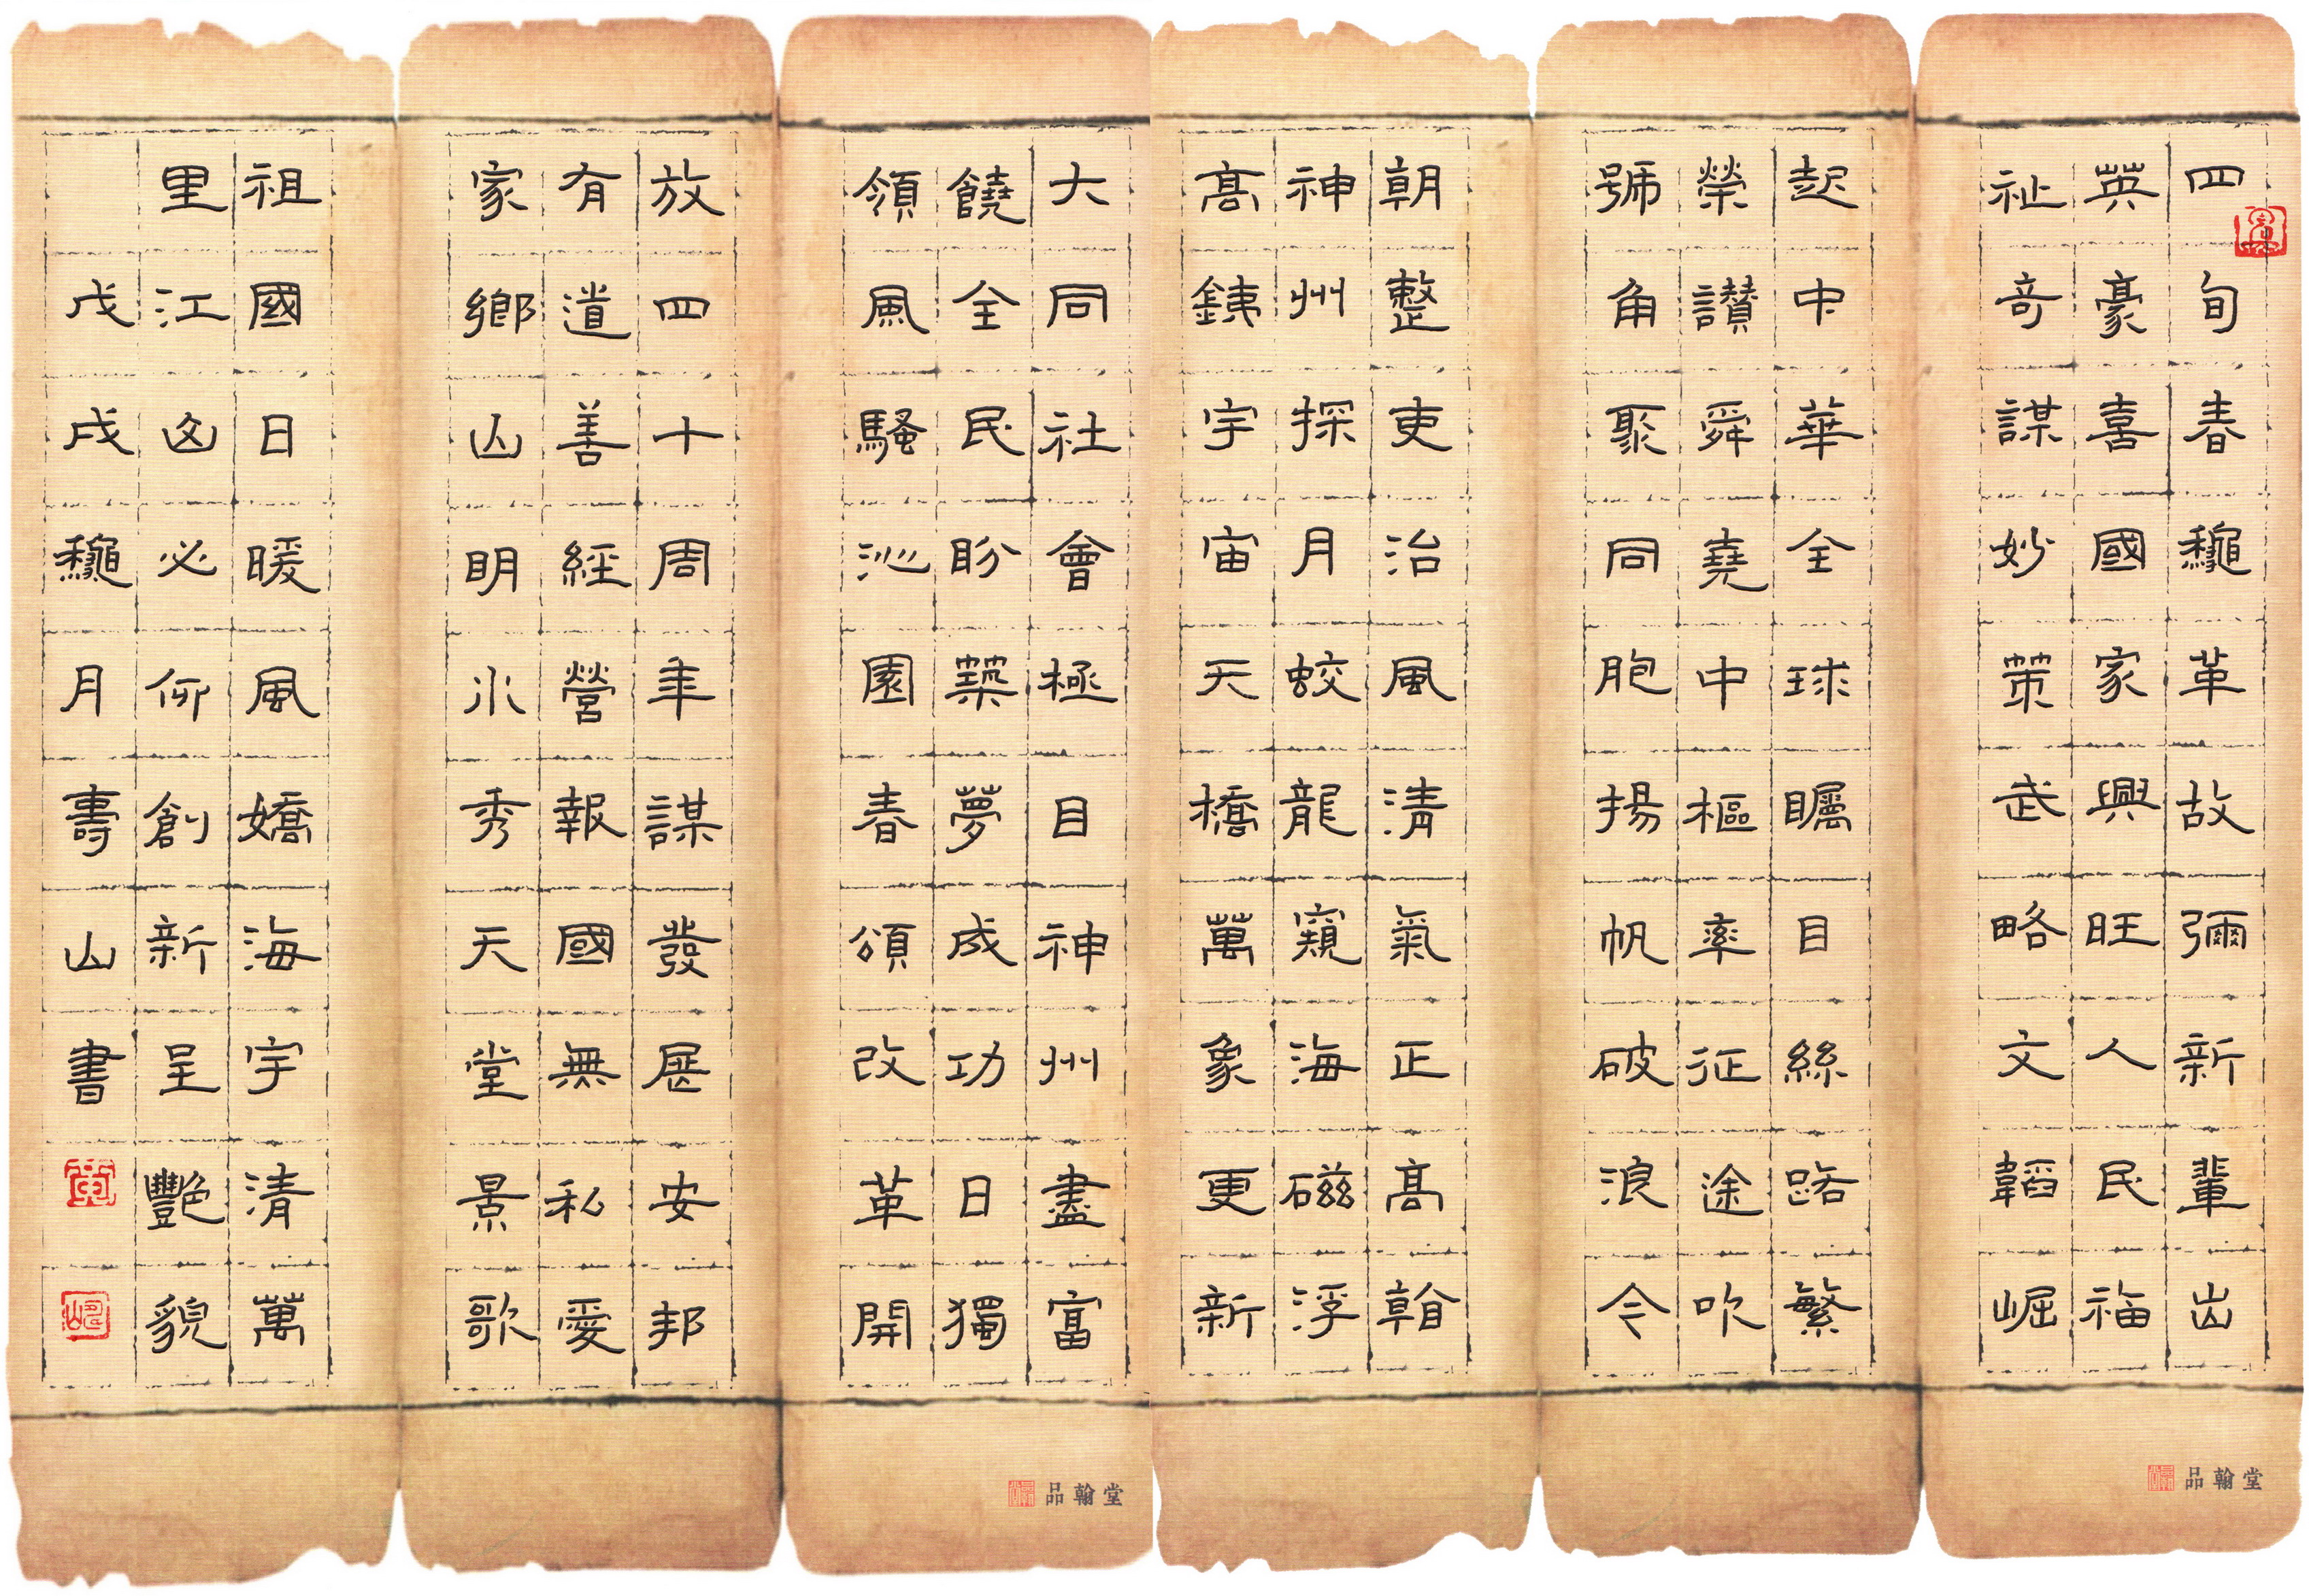 四旬春龝革故彌新輩出
英豪喜國家興旺人民福
祉奇謀妙策武略文韜崛
起中華全球矚目絲路繁
榮讃舜堯中樞率征途吹
號角聚同胞揚帆破浪令
朝整吏治風清氣正高
神州探月蛟龍窺海磁浮
高銕宇宙天橋萬象更新
大同社會極目神州盡富
饒全民盼築夢成功日獨
領風騷沁園春頌改革開
放四十周年謀發展安邦
有道善經營報國無私愛
家鄉山明水秀天堂景歌
祖國日暖風嬌海宇清萬
里江必創新呈艷貌
戊戌龝月壽山書
品翰堂
品翰堂